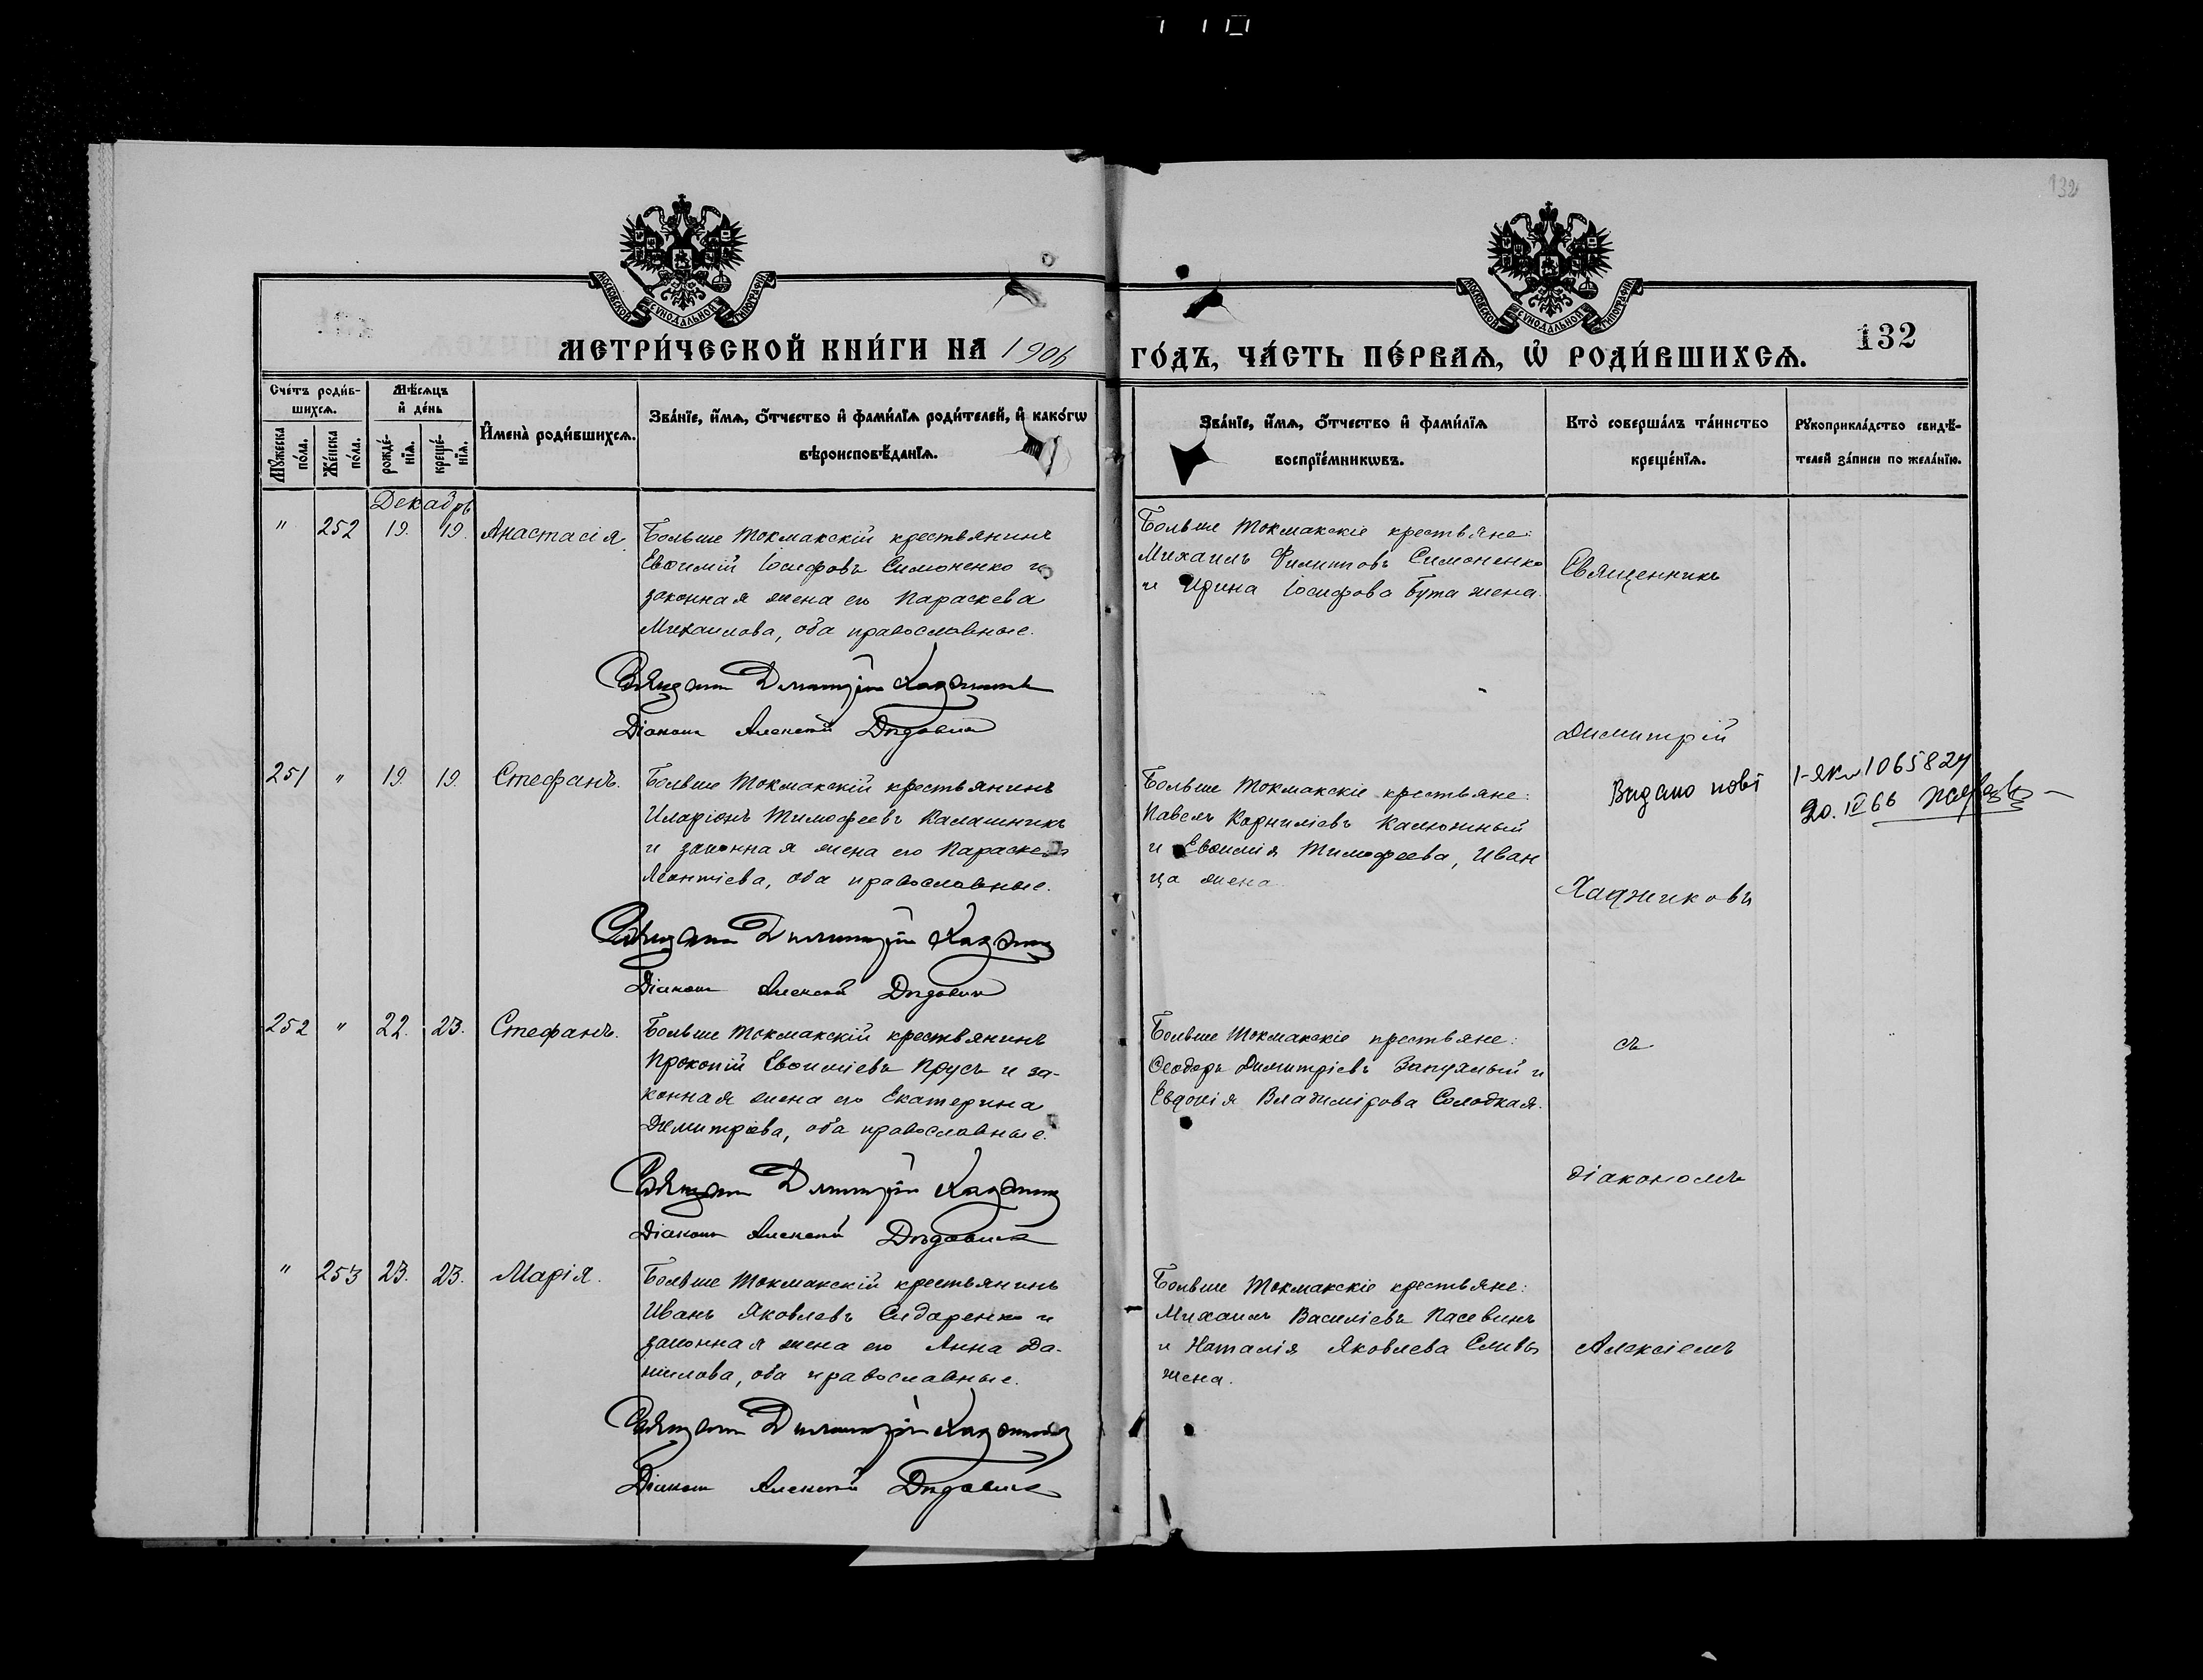 132
МОСКОВСКОЙ СУНОДАЛЬНОЙ ТИПОГРАФІИ
МОСКОВСКОЙ СУНОДАЛЬНОЙ ТИПОГРАФІИ
МЕТРИ́ЧЕСКОЙ КНИ́ГИ НА 1906
ГО́ДЪ, ЧА́СТЬ ПЕ́РВАЯ, Ѡ РОДИ́ВШИХСЯ. 132
Сче́тъ роди́в-
шихся.
Мѣ́сяцъ
и де́нь
Му́жеска по́ла.
Же́нска по́ла.
рожде́-
нїя.
креще́-
нїя.
И́мена̀ роди́вшихся.
Зва́нїе, и́мя, ѻ́тчество и фами́лїя роди́телей, и како́гѡ
вѣроисповѣ́данїя.
Зва́нїе, и́мя, ѻ́тчество и фами́лїя
воспрїе́мникѡвъ.
Кто̀ соверша́лъ та́инство
креще́нїя.
Рꙋкоприкла́дство свидѣ́-
телей за́писи по жела́нїю.
Декабрь
" 252 19. 19. Анастасія.
Больше Токмакскій крестьянинъ
Евѳимій Іосифовъ Симоненко и
законная жена его Параскева
Михаилова, оба православные.
Димитрій Хаджиновъ
Діаконъ Алексѣй
Больше Токмакскіе крестьяне:
Михаилъ Филипповъ Симоненко
и Ирина Іосифова Бута жена.
Священникъ
Димитрій
251 " 19. 19. Стефанъ.
Больше Токмакскій крестьянинъ
Иларіонъ Тимофеевъ Калашникъ
и законная жена его Параскева
Леонтіева, оба православные.
Димитрій
Діаконъ Алексѣй
Больше Токмакскіе крестьяне:
Павелъ Корниліевъ Калюжный
и Евѳимія Тимофеева, Иван
ца жена.
Видано нові
1-ЯК № 1065827
20. IV 66
Хаджиновъ
252 " 22. 23. Стефанъ.
Больше Токмакскій крестьянинъ
Прокопій Евѳиміевъ Прусъ и за-
конная жена его Екатерина
Димитріева, оба православные.
Димитрій
Діаконъ Алексѣй
Больше Токмакскіе крестьяне:
Ѳеодоръ Димитріевъ и
Евдокія Владимірова Солодкая.
съ
діакономъ
" 253 23. 23. Марія.
Больше Токмакскій крестьянинъ
Иванъ Яковлевъ Сидаренко и
законная жена его Анна Да-
ниилова, оба православные.
Димитрій
Діаконъ Алексѣй
Больше Токмакскіе крестьяне:
Михаилъ Василіевъ
и Наталія Яковлева Сливы
жена.
Алексіемъ